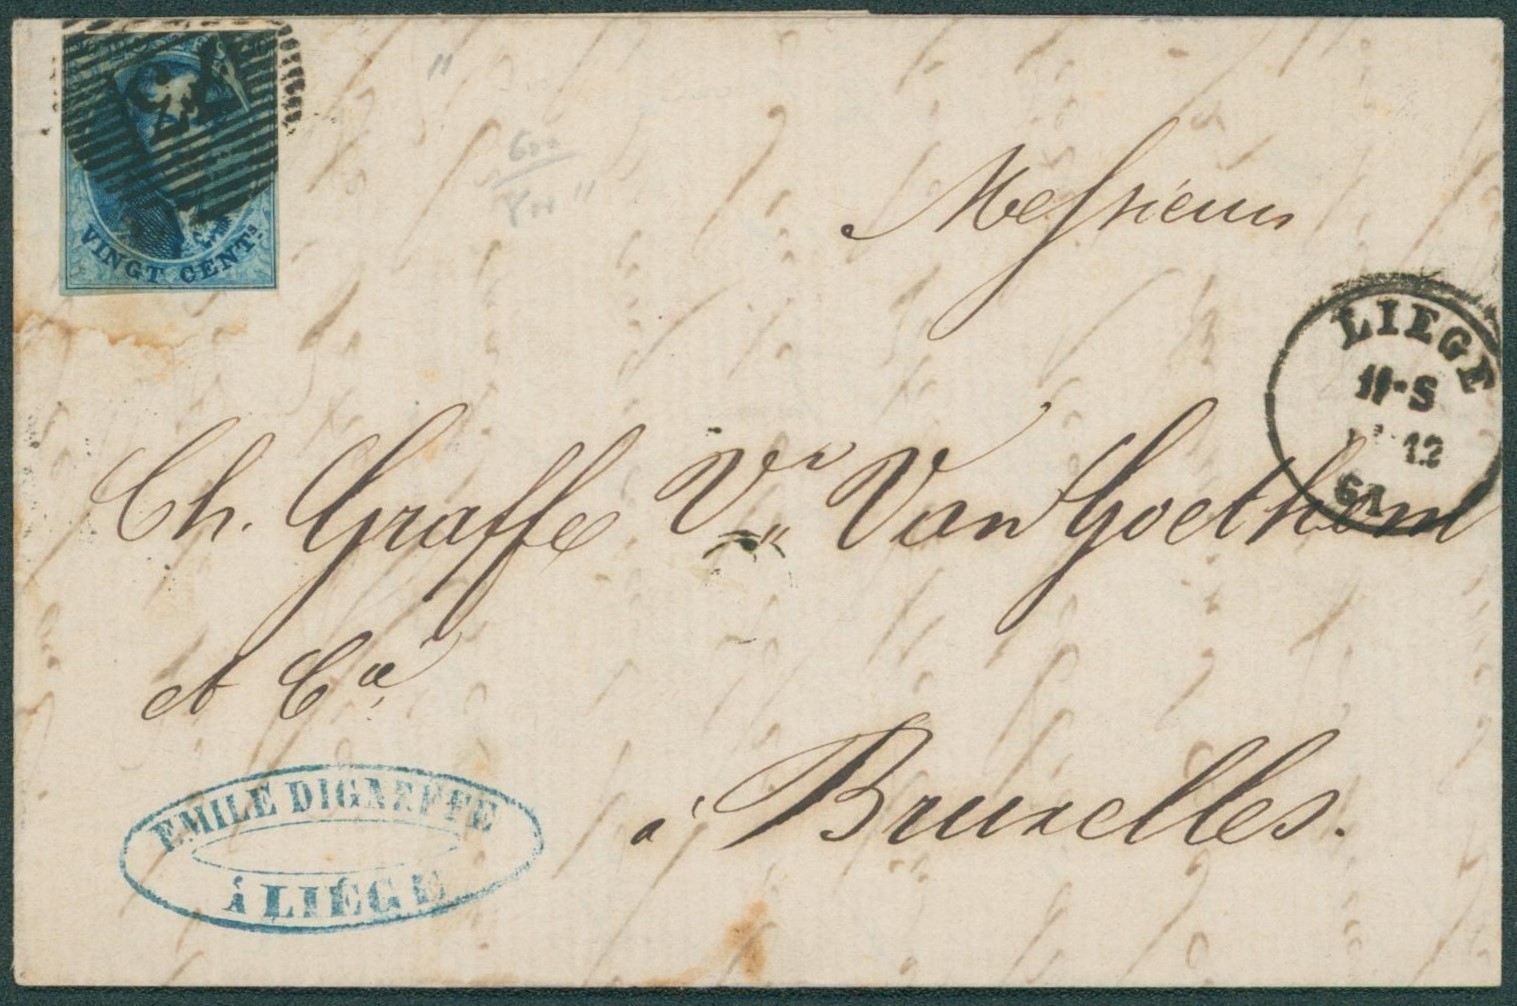 VINGT CENTS
600
Messieurs
LIEGE
11-S
12
61
Ch. Graffe Ve Van Goethem
et Cie
à Bruxelles.
EMILE DIGNEFFE
À LIÉGE